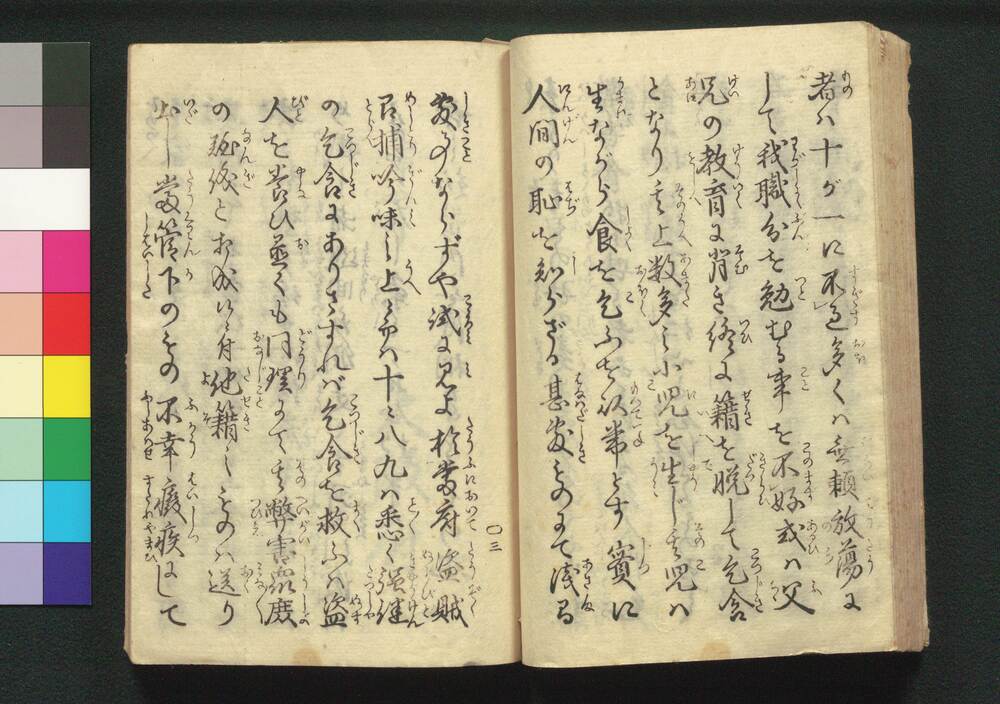 者ハ十が一に不過多くハ無頼放蕩に
して我職分を勉むる事を不好或ハ父
兄の教育に背き終に籍を脱して乞食
となり其上数多之小児を生じ其児ハ
生ながら食を乞ふを以常とす實に
人間の恥を知らざる甚敷ものにて浅間
敷事ならずや試に見よ於當府盗賊
召捕吟味之上ニ而ハ十ニ八九ハ悉く
の乞食にありさすれバ乞食を救ふハ盗
人を養ひ置くも同理にて其弊害衆庶
の難儀と相成候ニ付他籍之ものハ送り
出し當管下のものゝ不幸癈疾にして
〇三